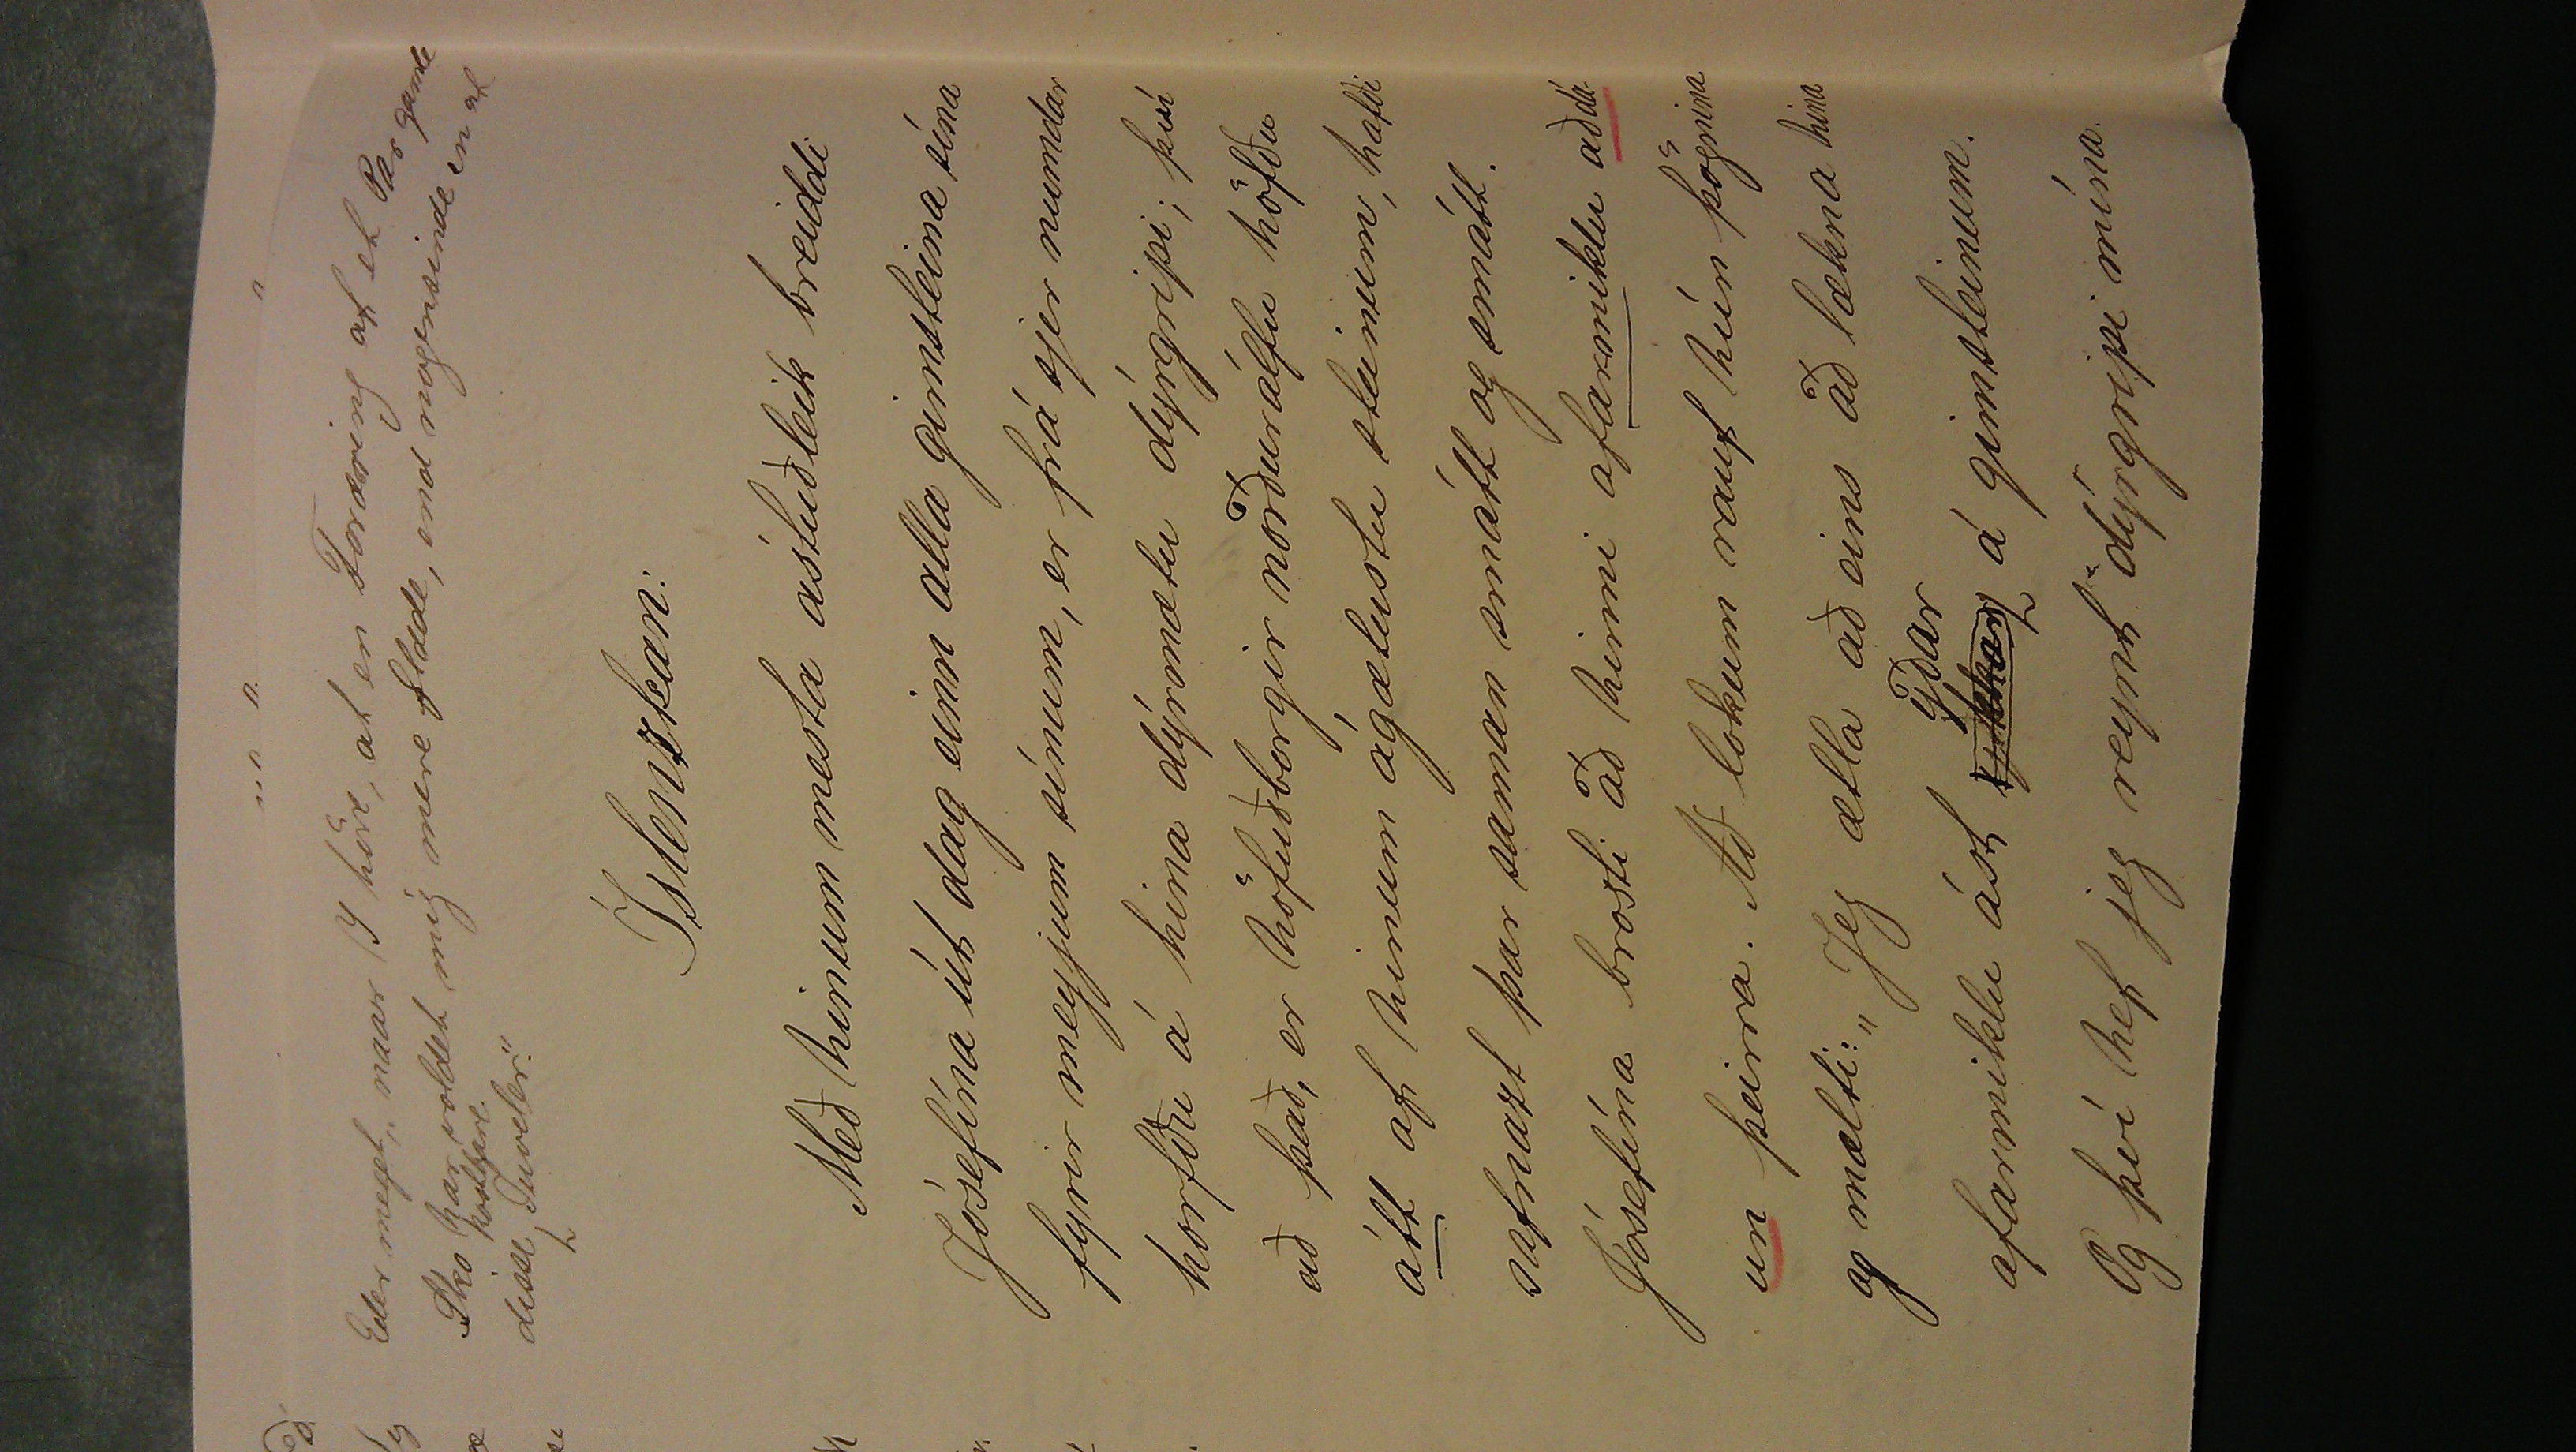 Eder meget, naar I höre, at en Fordring af et Par gamle
Sko har voldet mig mere Glæde, end nogensinde en af
kostbare
disse Juveler."
Íslenzkan:
Með hinum mesta ástúðleik breiddi
Jósefína út dag einn alla gimsteina sína
fyrir meyjum sínum, er frá sjer numdar
horfðu á hina dýrmætu dýrgripi; því
að það, er höfuðborgir norðurálfu höfðu
átt af hinum ágætustu steinum, hafði
safnazt þar saman smátt og smátt.
Jósefína brosti að hinni afarmiklu aðdá-
un þeirra. Að lokum rauf hún þögnina
og mælti: „Jeg ætla að eins að lækna hina
yðar
afarmiklu ást á gimsteinum.
Og því hef jeg reynt dýrgripi mína